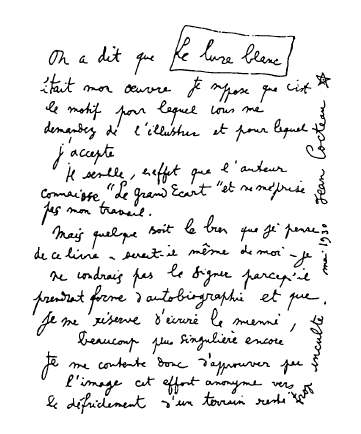 On a dit que Le livre blanc
était mon œuvre. Je suppose que c'est
le motif pour lequel vous me
demandez de l'illustrer et pour lequel
j'accepte
Il semble, en effet que l'auteur
connaisse "Le Grand Ecart" et ne méprise
pas mon travail.
Mais quelque soit le bien que je pense
de ce livre - serait-il même de moi - je
ne voudrais pas le signer parcequ'il
prendrait forme d'autobiographie et que
je me réserve d'écrire la mienne,
beaucoup plus singulière encore
Je me contente donc d'approuver par
l'image cet effort anonyme vers
le défrichement d'un terrain resté
trop inculte.
mai 1930
Jean Cocteau